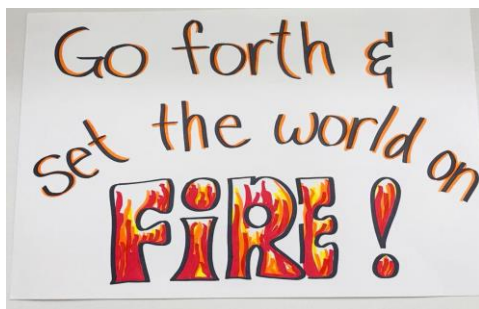 Go forth &
set the world on
FiRE!